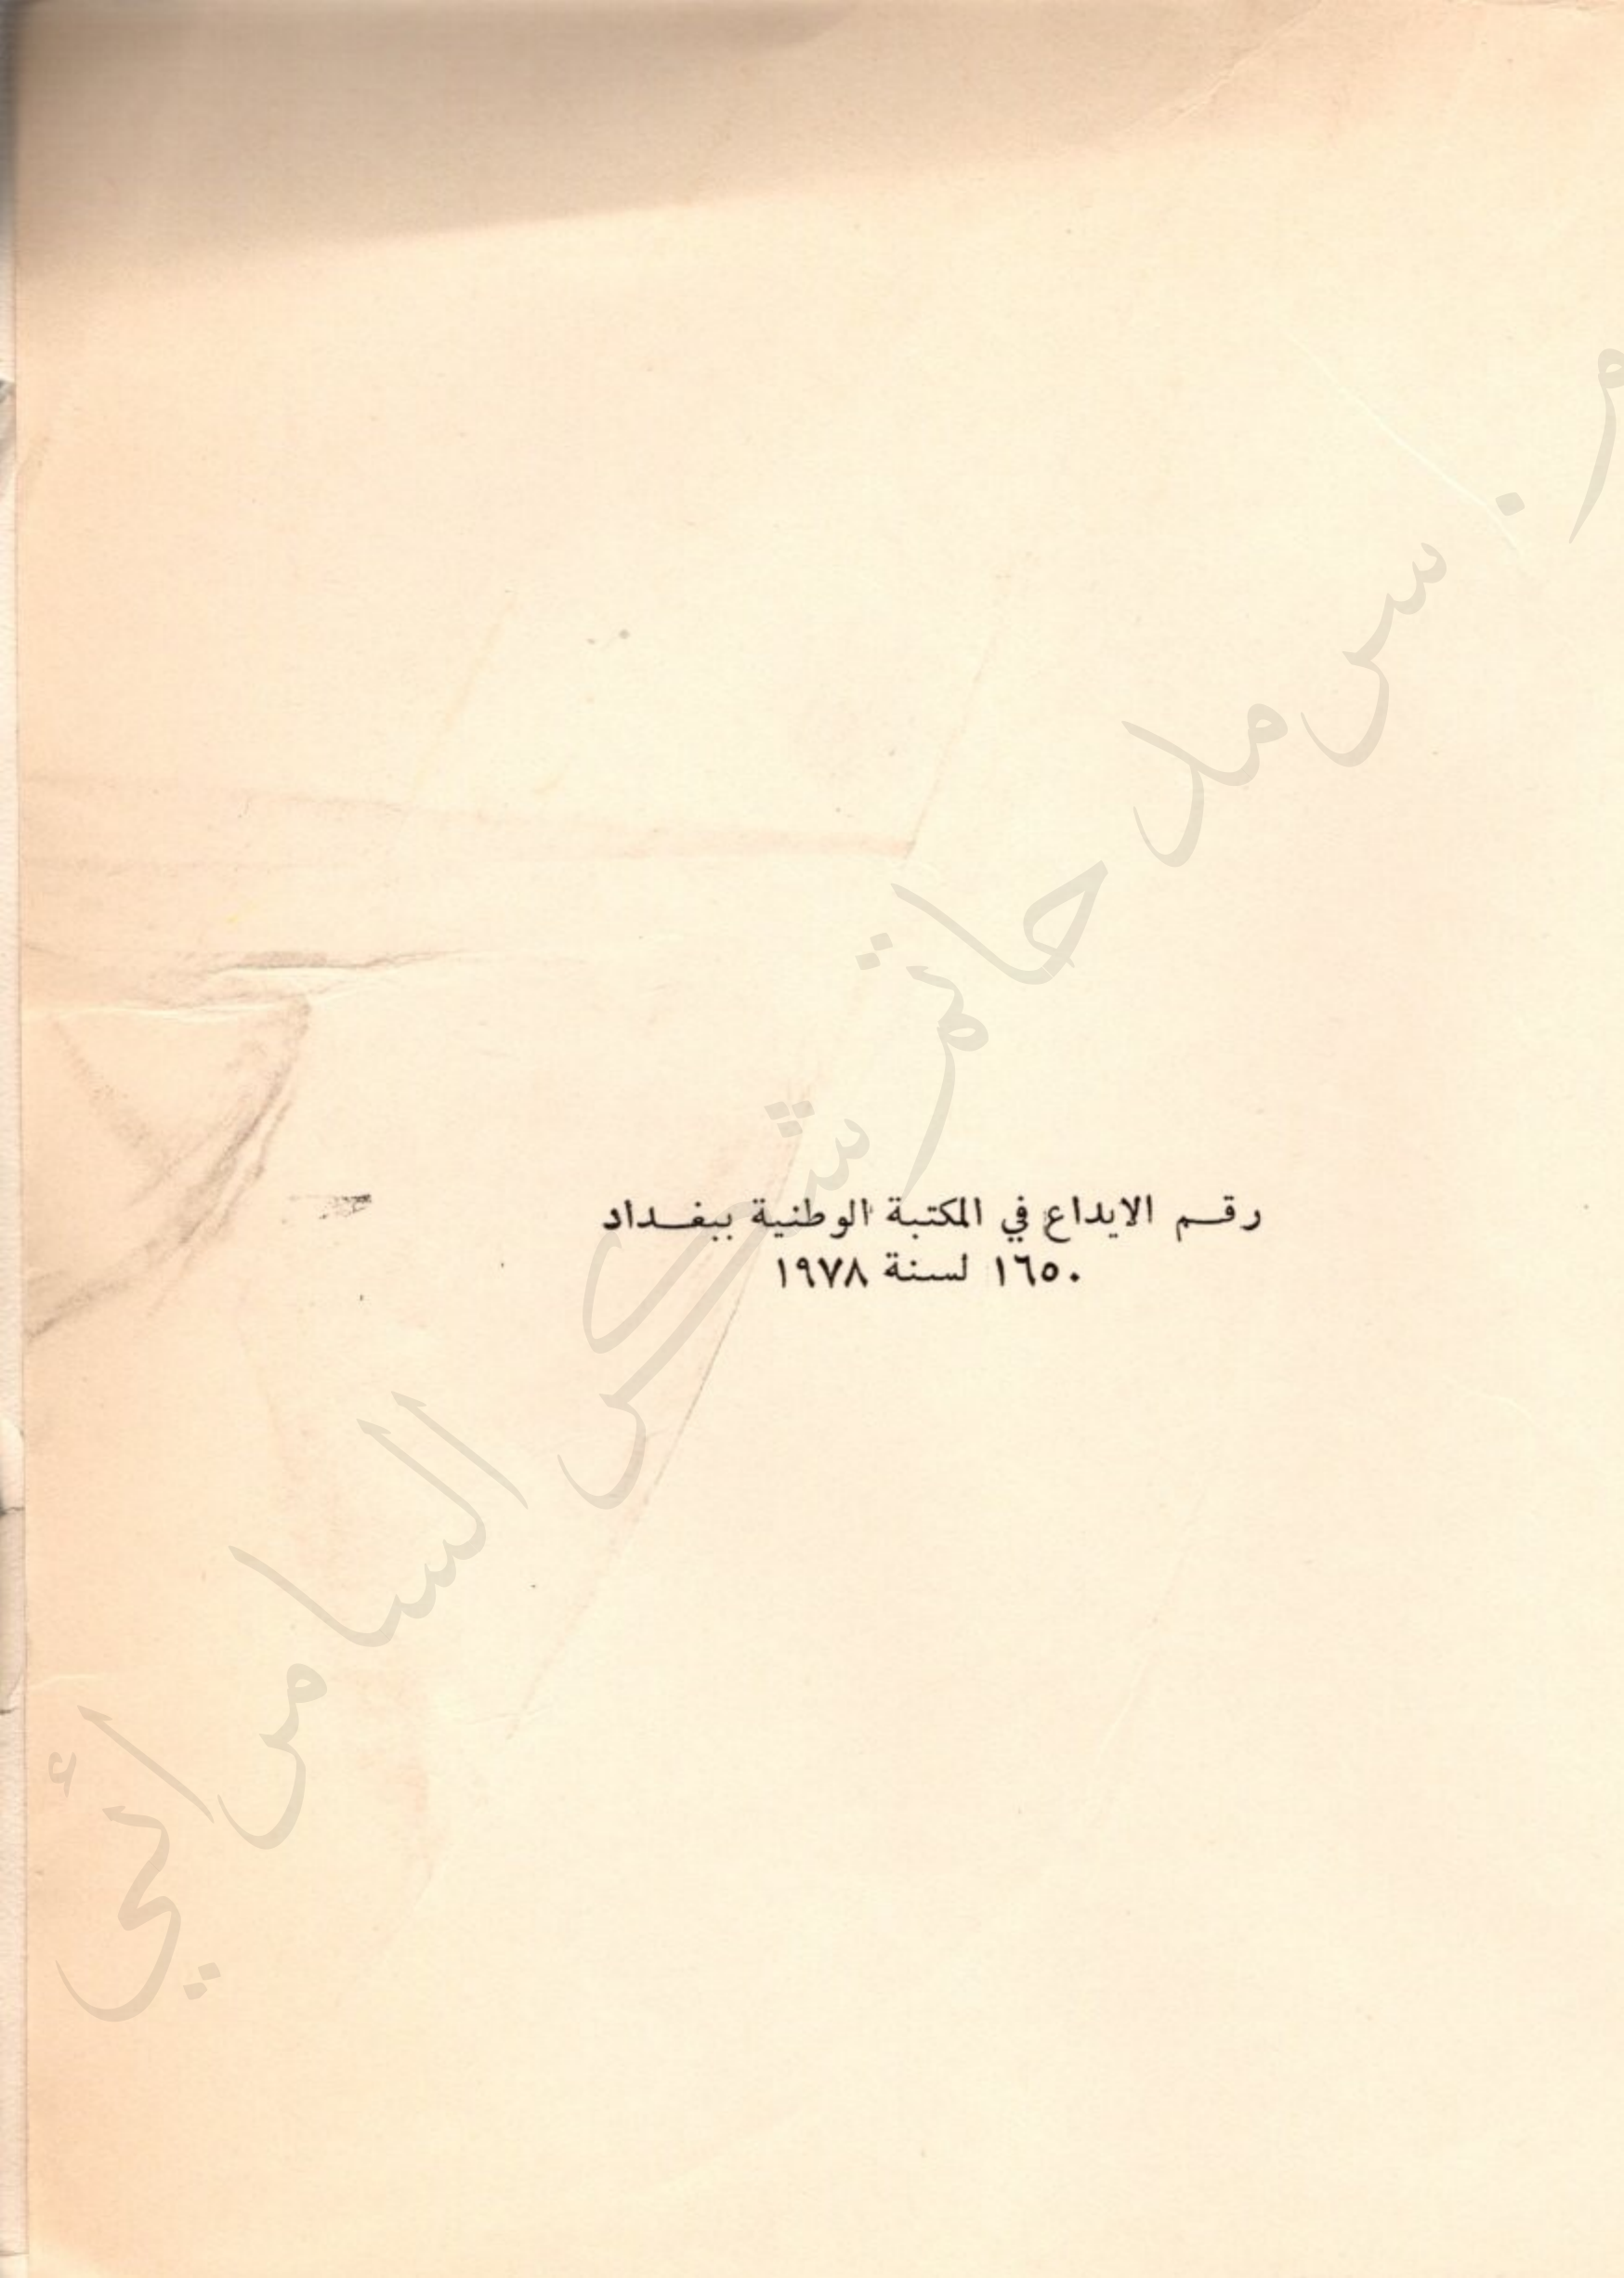 رقم الايداع في المكتبة الوطنية ببغداد
١٦٥٠ لسنة ١٩٧٨
سرمد حاتم شكر السامرائي